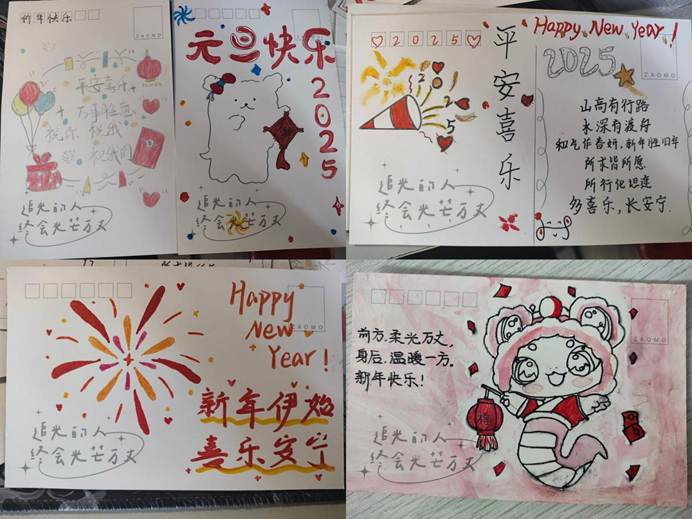 新年快乐
ZAOMO
平安喜乐
万事胜意
祝你
追光的人
终会光芒万丈
元旦快乐
2025
追光的人
终会光芒万丈
2025
平安喜乐
2025
追光的人
终会光芒万丈
Happy New Year!
2025
ZAOMO
山高有行路
水深有渡舟
和光作春好,新年胜旧年
所求皆所愿
所行化坦途
多喜乐,长安宁.
Happy
New
Year!
ZAOMO
新年伊始
喜乐安宁
追光的人
终会光芒万丈
ZAOMO
前方.柔光万丈,
身后.温暖一方。
新年快乐!
追光的人
终会光芒万丈